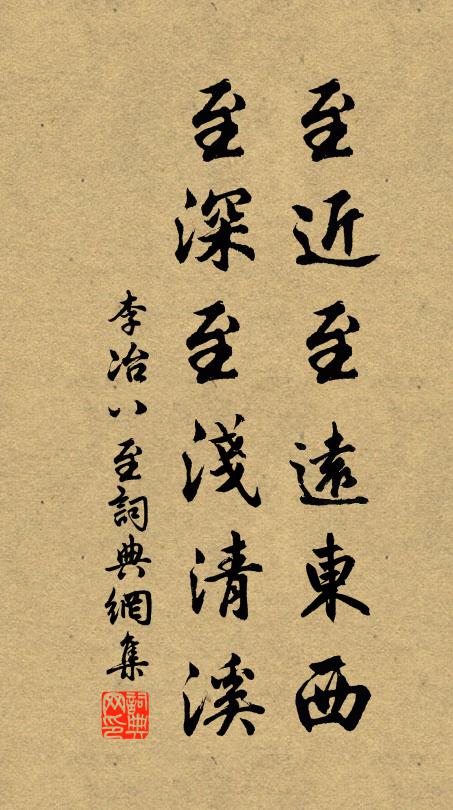 至近至遠東西
至深至淺清溪
李冶八至詞典網集
詞典網印